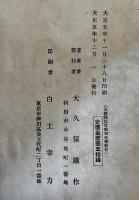 大正五年十一月二十八日印刷
大正五年十二月一日發行
著者兼
發行者
大久保鐵作
秋田市中谷地町一番地
印刷者
白土幸力
東京市神田區美土代町二丁目一番地